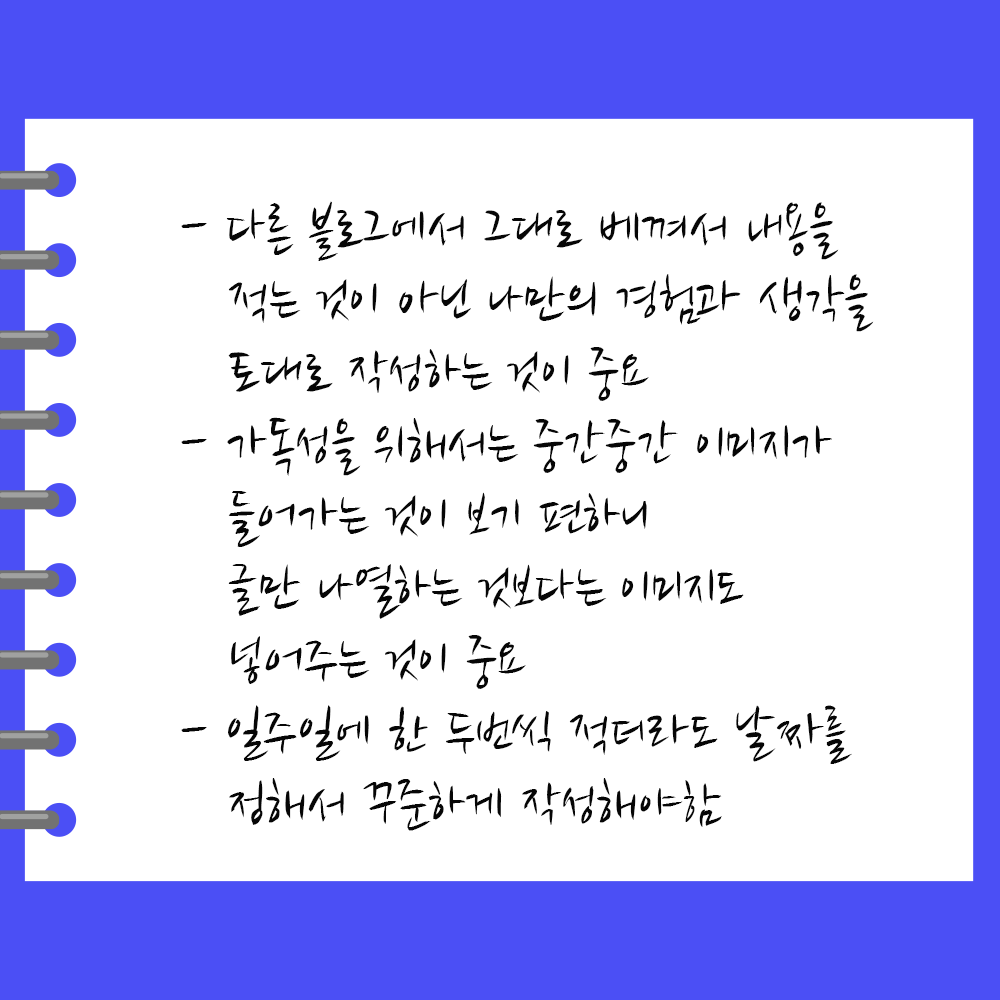 - 다른 블로그에서 그대로 베껴서 내용을
적는 것이 아닌 나만의 경험과 생각을
토대로 작성하는 것이 중요
- 가독성을 위해서는 중간중간 이미지가
들어가는 것이 보기 편하니
글만 나열하는 것보다는 이미지도
넣어주는 것이 중요
- 일주일에 한 두번씩 적더라도 날짜를
정해서 꾸준하게 작성해야함